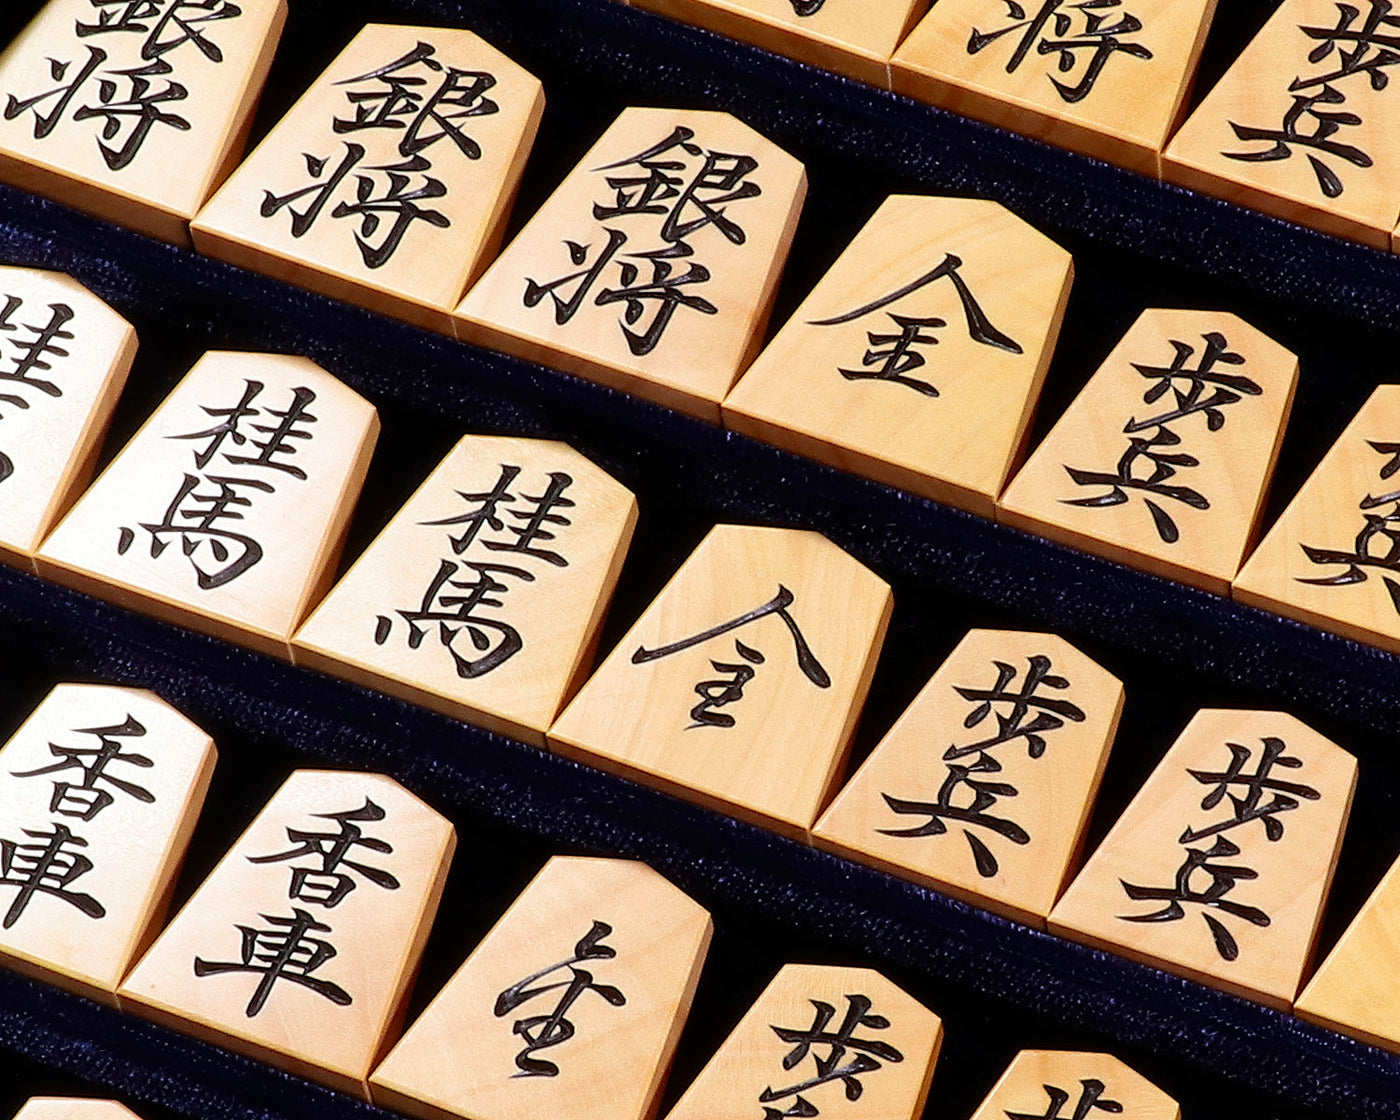 銀将
銀将
銀将
金
歩兵
将
歩兵
桂馬
桂馬
全
歩兵
歩兵
香車
香車
歩
歩